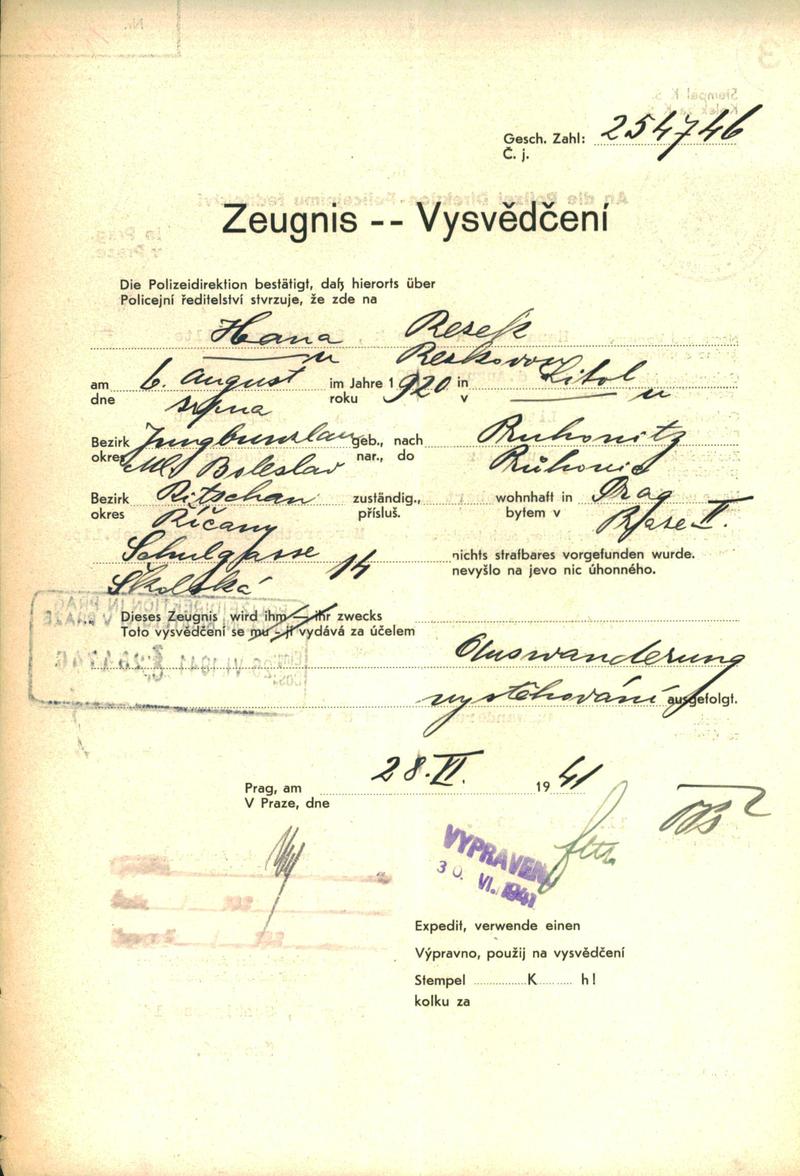 Gesch. Zahl: 254746
Č. j.
Zeugnis -- Vysvědčení
Die Polizeidirektion bestätigt, daß hierorts über
Policejní ředitelství stvrzuje, že zde na
Hana Resek
am 6. August im Jahre 1920 in Litol
dne srpna roku v
Bezirk Jungbunzlau geb., nach
okres Ml. Boleslav nar., do
Bezirk Ritschan zuständig., wohnhaft in Prag
okres Říčany přísluš. bytem v Praze II.
Schulgasse 14 nichts strafbares vorgefunden wurde.
Školská nevyšlo na jevo nic úhonného.
Dieses Zeugnis wird ihm — ihr zwecks
Toto vysvědčení se mu - jí vydává za účelem
Auswanderung
vystěhování ausgefolgt.
Prag, am 28. VI. 1941
V Praze, dne
VYPRAVENO
30. VI. 1941
Expedit, verwende einen
Výpravno, použij na vysvědčení
Stempel K h!
kolku za